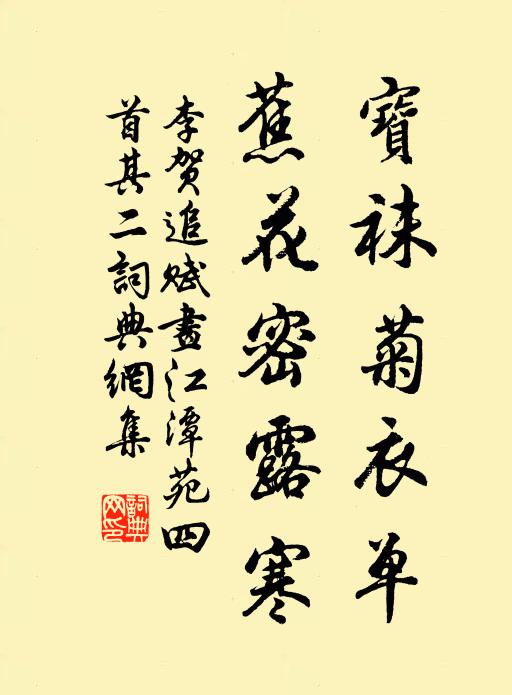 寶袜菊衣单
蕉花密露寒
李贺追赋畫江潭苑四
首其二詞典網集
詞典網印